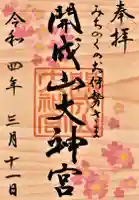 奉拝
みちのくのお伊勢さま
開成山大神宮
令和四年三月十一日